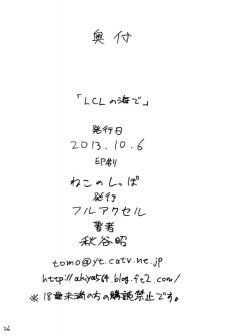 奥付
「LCLの海で」
発行日
2013.10.6
印刷
ねこのしっぽ
発行
フルアクセル
著者
秋谷昭
tomo@yt.catv.ne.jp
http://akiya514.blog.fc2.com/
※18歳未満の方の購読禁止です。
26